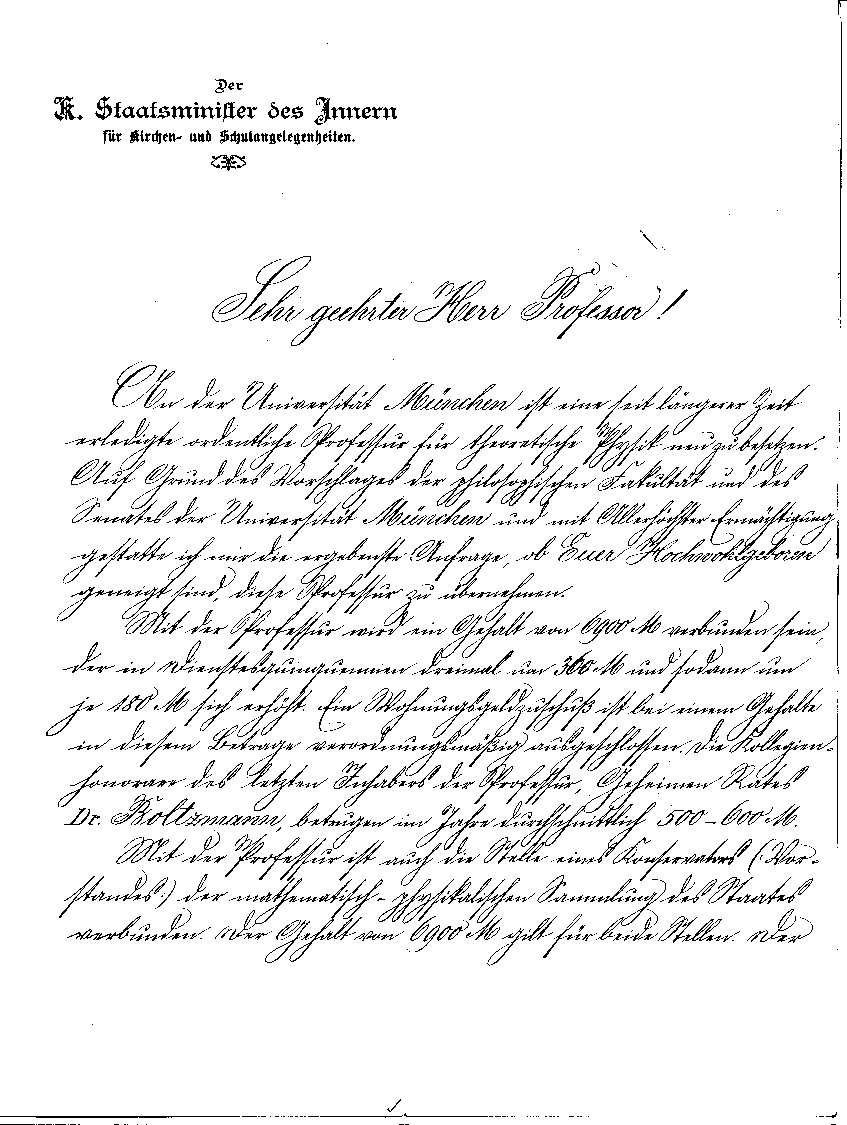 Der
K. Staatsminister des Innern
für Kirchen- und Schulangelegenheiten.
Sehr geehrter Herr Professor!
An der Universität München ist eine seit längerer Zeit
erledigte ordentliche Professur für theoretische Physik neu zu besetzen.
Auf Grund des Vorschlages der philosophischen Fakultät und des
Senates der Universität München und mit Allerhöchster Ermächtigung
gestatte ich mir die ergebenste Anfrage, ob Euer Hochwohlgeboren
geneigt sind, diese Professur zu übernehmen.
Mit der Professur wird ein Gehalt von 6900 M verbunden sein,
der in Dienstesquinquennien dreimal um 360 M und sodann um
je 180 M sich erhöht. Ein Wohnungsgeldzuschuß ist bei einem Gehalte
in diesem Betrage verordnungsmäßig ausgeschlossen. Die Kollegien-
honorare des letzten Inhabers der Professur, Geheimen Rates
Dr. Boltzmann, betrugen im Jahre durchschnittlich 500-600 M.
Mit der Professur ist auch die Stelle eines Konservators (Vor-
standes) der mathematisch-physikalischen Sammlung des Staates
verbunden. Der Gehalt von 6900 M gilt für beide Stellen. Der